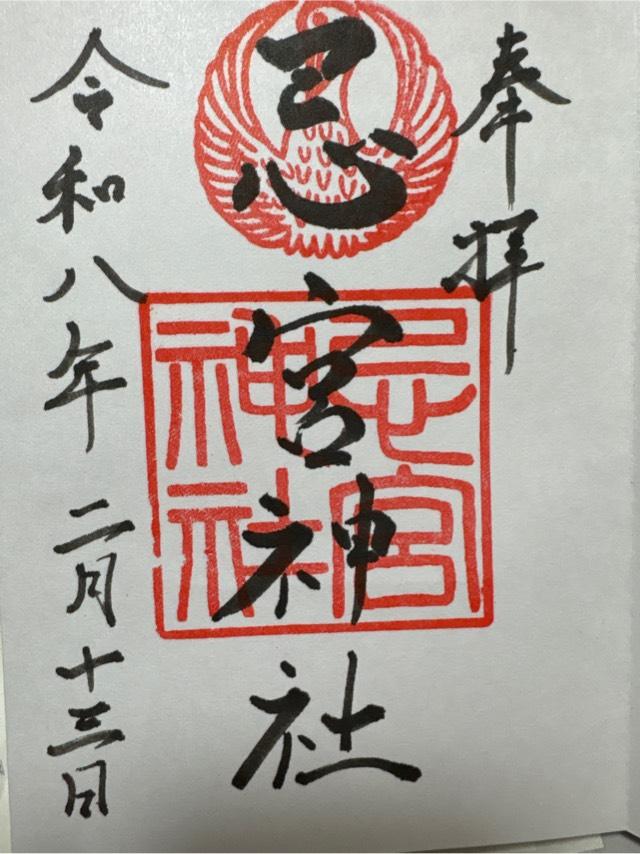 奉拝
忌宮神社
忌宮神社
令和八年 二月十三日